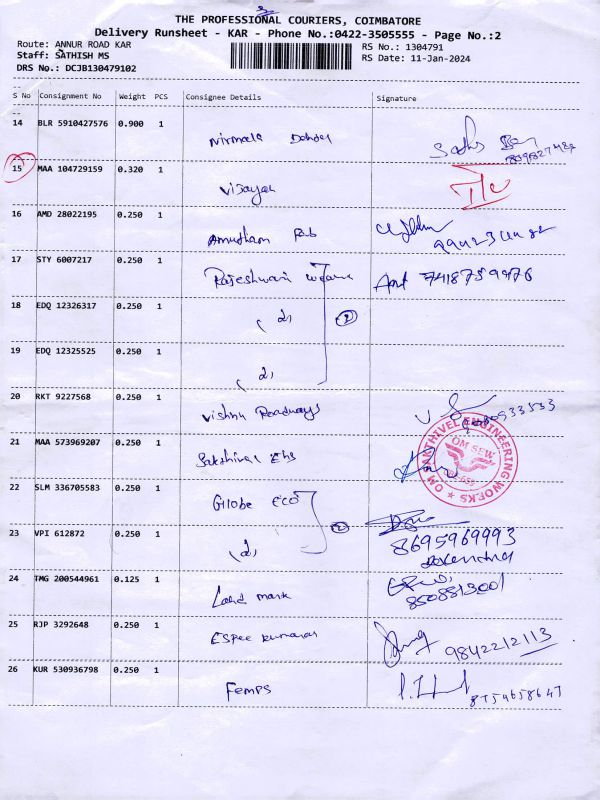 THE PROFESSIONAL COURIERS, COIMBATORE
Delivery Runsheet - KAR - Phone No.:0422-3505555 - Page No.:2
Route: ANNUR ROAD KAR
RS No.: 1304791
Staff: SATHISH MS
RS Date: 11-Jan-2024
DRS No.: DCJB130479102
S No Consignment No Weight PCS Consignee Details Signature
14 BLR 5910427576 0.900 1 Nirmala
15 MAA 104729159 0.320 1 Vijayan
16 AMD 28022195 0.250 1 Amutham Fab
17 STY 6007217 0.250 1 Rajeshwari 7418759976
18 EDQ 12326317 0.250 1 (2)
19 EDQ 12325525 0.250 1 (2)
20 RKT 9227568 0.250 1 Vishnu Roadways
21 MAA 573969207 0.250 1 Sakthivel
OM SAKTHIVEL ENGINEERING WORKS
OM SEW
22 SLM 336705583 0.250 1 Globe Eco
23 VPI 612872 0.250 1 (2) 8695969993
24 TMG 200544961 0.125 1 Land mark 8508813001
25 RJP 3292648 0.250 1 Espee Kumaran 9842212113
26 KUR 530936798 0.250 1 Femps 8754658647